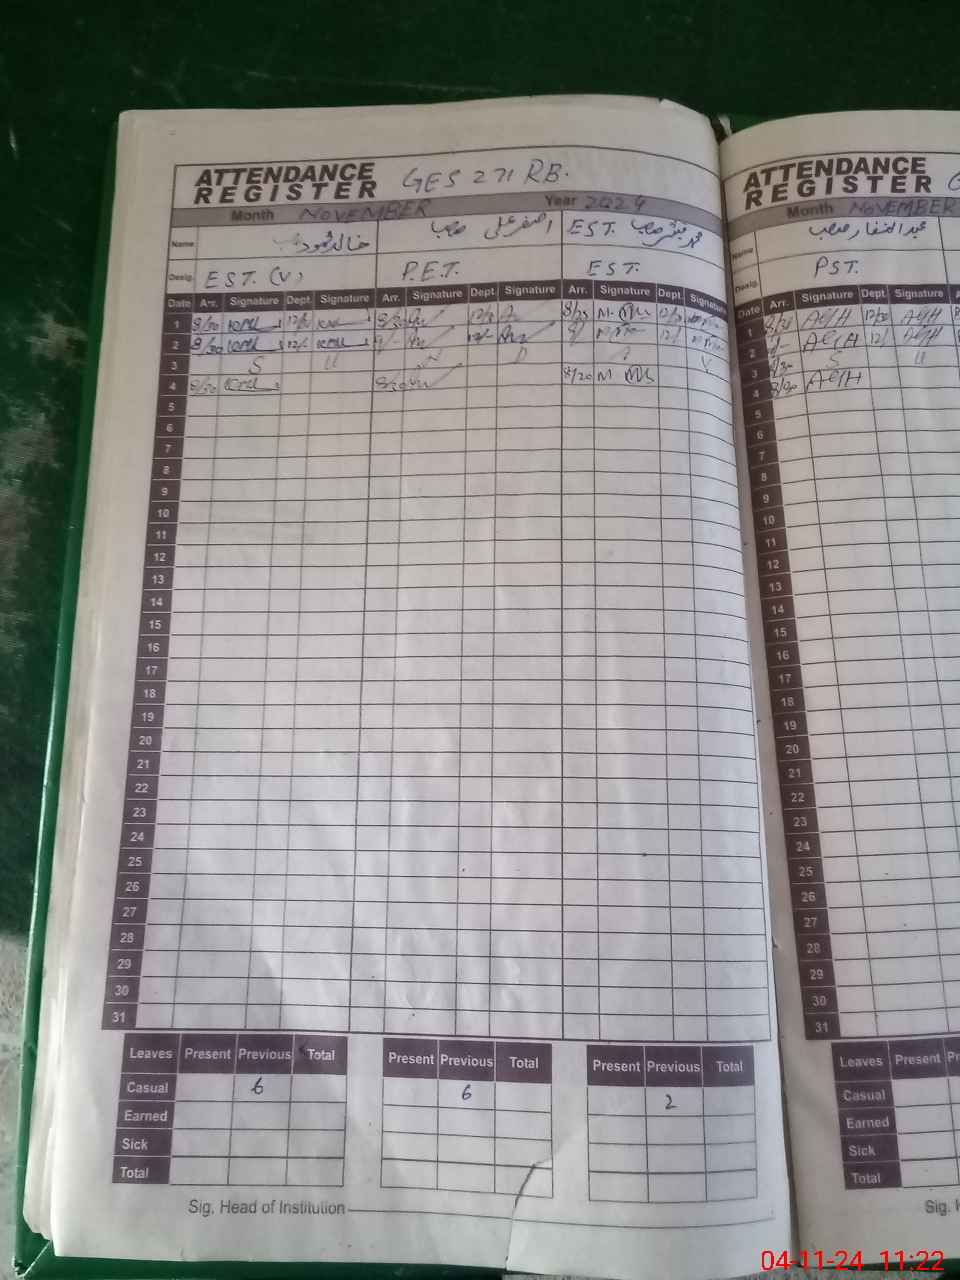 ATTENDANCE REGISTER GES 271 RB.
Month NOVEMBER Year 2024
Name خالد محمود اصغر علی صاحب EST. محمد مبشر صاحب
Desig. EST. (V) P.E.T. EST.
Date Arr. Signature Dept. Signature Arr. Signature Dept. Signature Arr. Signature Dept. Signature
1 8/30 12/30 8/30 12/30 8/25 12/30
2 8/30 12/- 12/- 12/-
3 S U N D A Y
4 8/30 8/30 8/20
5
6
7
8
9
10
11
12
13
14
15
16
17
18
19
20
21
22
23
24
25
26
27
28
29
30
31
Leaves Present Previous Total Present Previous Total Present Previous Total
Casual 6 6 2
Earned
Sick
Total
Sig. Head of Institution
ATTENDANCE REGISTER G
Month NOVEMBER
Name عبدالغفار صاحب
Desig. PST.
Date Arr. Signature Dept. Signature
1 AGH 12/30 AGH
2 AGH 12/- AGH
3 S U
4 8/30 AGH
5
6
7
8
9
10
11
12
13
14
15
16
17
18
19
20
21
22
23
24
25
26
27
28
29
30
31
Leaves Present
Casual
Earned
Sick
Total
Sig.
04-11-24 11:22